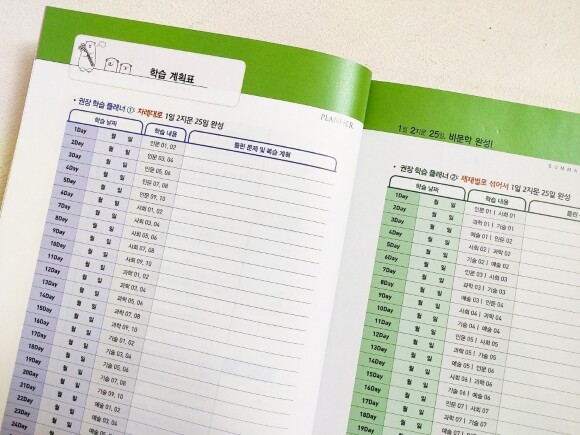 학습 계획표
• 권장 학습 플래너 ①: 차례대로 1일 2지문 25일 완성
PLANNER
학습 날짜 학습 내용 틀린 문제 및 복습 계획
1Day 월 일 인문 01, 02
2Day 월 일 인문 03, 04
3Day 월 일 인문 05, 06
4Day 월 일 인문 07, 08
5Day 월 일 인문 09, 10
6Day 월 일 사회 01, 02
7Day 월 일 사회 03, 04
8Day 월 일 사회 05, 06
9Day 월 일 사회 07, 08
10Day 월 일 사회 09, 10
11Day 월 일 과학 01, 02
12Day 월 일 과학 03, 04
13Day 월 일 과학 05, 06
14Day 월 일 과학 07, 08
15Day 월 일 과학 09, 10
16Day 월 일 기술 01, 02
17Day 월 일 기술 03, 04
18Day 월 일 기술 05, 06
19Day 월 일 기술 07, 08
20Day 월 일 기술 09, 10
21Day 월 일 예술 01, 02
22Day 월 일 예술 03, 04
23Day 월 일 예술 05, 06
24Day
1일 2지문 25일, 비문학 완성!
SUMMA
• 권장 학습 플래너 ②: 제재별로 섞어서 1일 2지문 25일 완성
학습 날짜 학습 내용 틀린
1Day 월 일 인문 01 | 사회 01
2Day 월 일 과학 01 | 기술 01
3Day 월 일 예술 01 | 인문 02
4Day 월 일 사회 02 | 과학 02
5Day 월 일 기술 02 | 예술 02
6Day 월 일 인문 03 | 사회 03
7Day 월 일 과학 03 | 기술 03
8Day 월 일 예술 03 | 인문 04
9Day 월 일 사회 04 | 과학 04
10Day 월 일 기술 04 | 예술 04
11Day 월 일 인문 05 | 사회 05
12Day 월 일 과학 05 | 기술 05
13Day 월 일 예술 05 | 인문 06
14Day 월 일 사회 06 | 과학 06
15Day 월 일 기술 06 | 예술 06
16Day 월 일 인문 07 | 사회 07
17Day 월 일 과학 07 | 기술 07
18Day 월 일
19Day